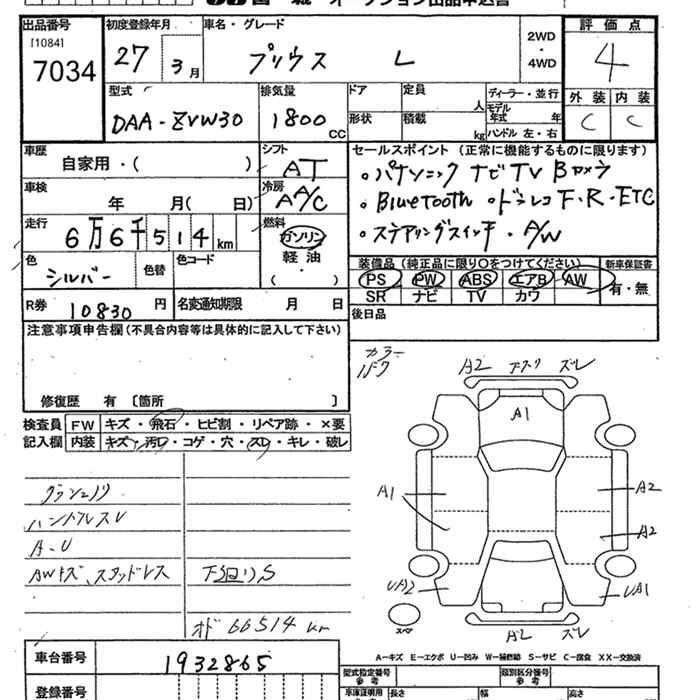 オークション出品申込書
出品番号
[1084]
7034
初度登録年月
27 3月
車名・グレード
プリウス L
2WD
・
4WD
評価点
4
外装 内装
C C
型式
DAA-ZVW30
排気量
1800 CC
ドア
形状
定員 人
積載 kg
ディーラー・並行
モデル年式 年
ハンドル 左・右
車歴
自家用・( )
シフト
AT
車検
年 月( 日)
冷房
A A/C
走行
6万6千514km
燃料
ガソリン
軽油
( ・ )
色
シルバー
色替
色コード
R券 10830 円
名変通知期限 月 日
セールスポイント (正常に機能するものに限ります)
。パナソニック ナビTV Bカメラ
。Bluetooth 。ドラレコ F・R・ETC
。ステアリングスイッチ・A/W
装備品 (純正品に限り○をつけてください)
新車保証書
PS PW ABS エアB AW
有・無
SR ナビ TV カワ
後日品
注意事項申告欄(不具合内容等は具体的に記入して下さい)
修復歴 有 〔箇所 〕
検査員記入欄
FW キズ・飛石・ヒビ割・リペア跡・×要
内装 キズ・汚レ・コゲ・穴・スレ・キレ・破レ
ハンドルスレ
A・U
AWキズ、スタッドレス
下廻りS
オド 66514 km
A2 ズレ
A1
A1
A2
A2
UA2
UA1
スペア
A2 ズレ
A－キズ E－エクボ U－凹み W－補修跡 S－サビ C－腐食 XX－交換済
車台番号
1932865
登録番号
型式指定番号
参考
類別区分番号
参考
車庫証明用
長さ 幅 高さ